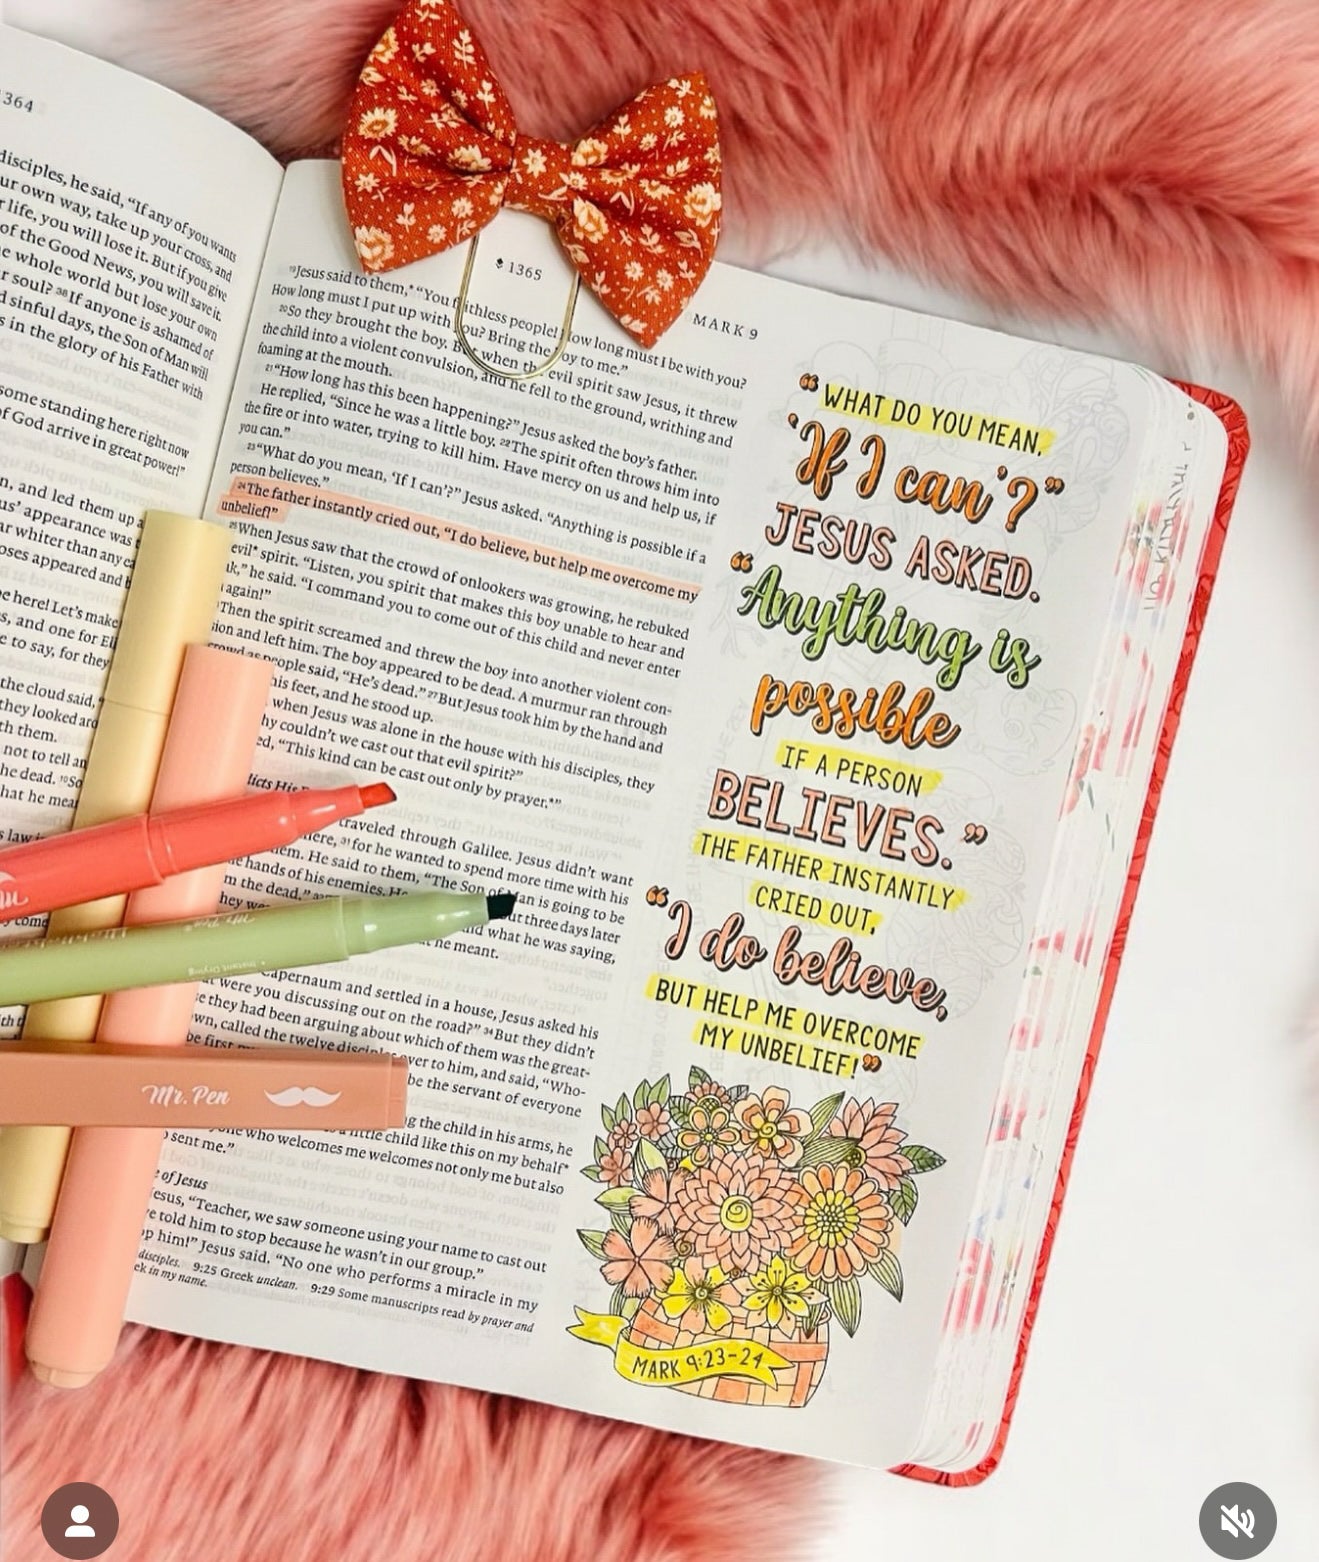 1364
disciples, he said, “If any of you wants
ur own way, take up your cross, and
r life, you will lose it. But if you give
of the Good News, you will save it.
e whole world but lose your own
r soul? 38If anyone is ashamed of
d sinful days, the Son of Man will
s in the glory of his Father with
some standing here right now
of God arrive in great power!”
n, and led them up a
us’ appearance was t
ar whiter than any ea
oses appeared and b
e here! Let’s make
s, and one for Eli
e to say, for they
the cloud said, “
they looked aro
th them.
not to tell an
he dead. 10So
hat he mea
s law
y come
1365
MARK 9
19Jesus said to them,* “You faithless people! How long must I be with you?
How long must I put up with you? Bring the boy to me.”
20So they brought the boy. But when the evil spirit saw Jesus, it threw
the child into a violent convulsion, and he fell to the ground, writhing and
foaming at the mouth.
21“How long has this been happening?” Jesus asked the boy’s father.
He replied, “Since he was a little boy. 22The spirit often throws him into
the fire or into water, trying to kill him. Have mercy on us and help us, if
you can.”
23“What do you mean, ‘If I can’?” Jesus asked. “Anything is possible if a
person believes.”
24The father instantly cried out, “I do believe, but help me overcome my
unbelief!”
25When Jesus saw that the crowd of onlookers was growing, he rebuked
evil* spirit. “Listen, you spirit that makes this boy unable to hear and
k,” he said. “I command you to come out of this child and never enter
again!”
Then the spirit screamed and threw the boy into another violent con-
sion and left him. The boy appeared to be dead. A murmur ran through
crowd as people said, “He’s dead.” 27But Jesus took him by the hand and
his feet, and he stood up.
when Jesus was alone in the house with his disciples, they
hy couldn’t we cast out that evil spirit?”
ed, “This kind can be cast out only by prayer.*”
dicts His
traveled through Galilee. Jesus didn’t want
here, 31for he wanted to spend more time with his
hem. He said to them, “The Son of Man is going to be
e hands of his enemies. He ut three days later
m the dead.” nd what he was saying,
hey we t he meant.
Capernaum and settled in a house, Jesus asked his
t were you discussing out on the road?” 34But they didn’t
e they had been arguing about which of them was the great-
wn, called the twelve disciples over to him, and said, “Who-
be first be the servant of everyone
g the child in his arms, he
a little child like this on my behalf*
one who welcomes me welcomes not only me but also
sent me.”
e of Jesus
esus, “Teacher, we saw someone using your name to cast out
e told him to stop because he wasn’t in our group.”
p him!” Jesus said. “No one who performs a miracle in my
disciples. 9:25 Greek unclean. 9:29 Some manuscripts read by prayer and
ek in my name.
“WHAT DO YOU MEAN,
‘If I can’?”
JESUS ASKED.
“Anything is
possible
IF A PERSON
BELIEVES.”
THE FATHER INSTANTLY
CRIED OUT,
“I do believe,
BUT HELP ME OVERCOME
MY UNBELIEF!”
MARK 9:23-24
Mr. Pen